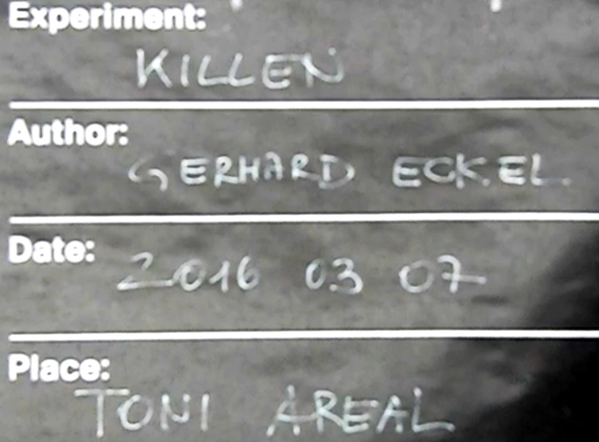 Experiment:
KILLEN
Author:
GERHARD ECKEL
Date:
2016 03 07
Place:
TONI AREAL